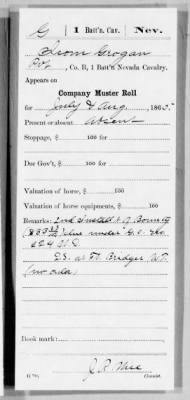 G | 1 Batt'n. Cav. | Nev.
Grogan
Pvt, Co. B, 1 Batt'n Nevada Cavalry.
Appears on
Company Muster Roll
for July & Aug, 1865.
Present or absent Absent
Stoppage, $ 100 for
Due Gov't, $ 100 for
Valuation of horse, $ 100
Valuation of horse equipments, $ 100
Remarks: 2nd Install't of Bounty
due under G.O. No
A.G.O.
D.S. at Ft. Bridger U.T.
(no order)
Book mark:
Copyist.